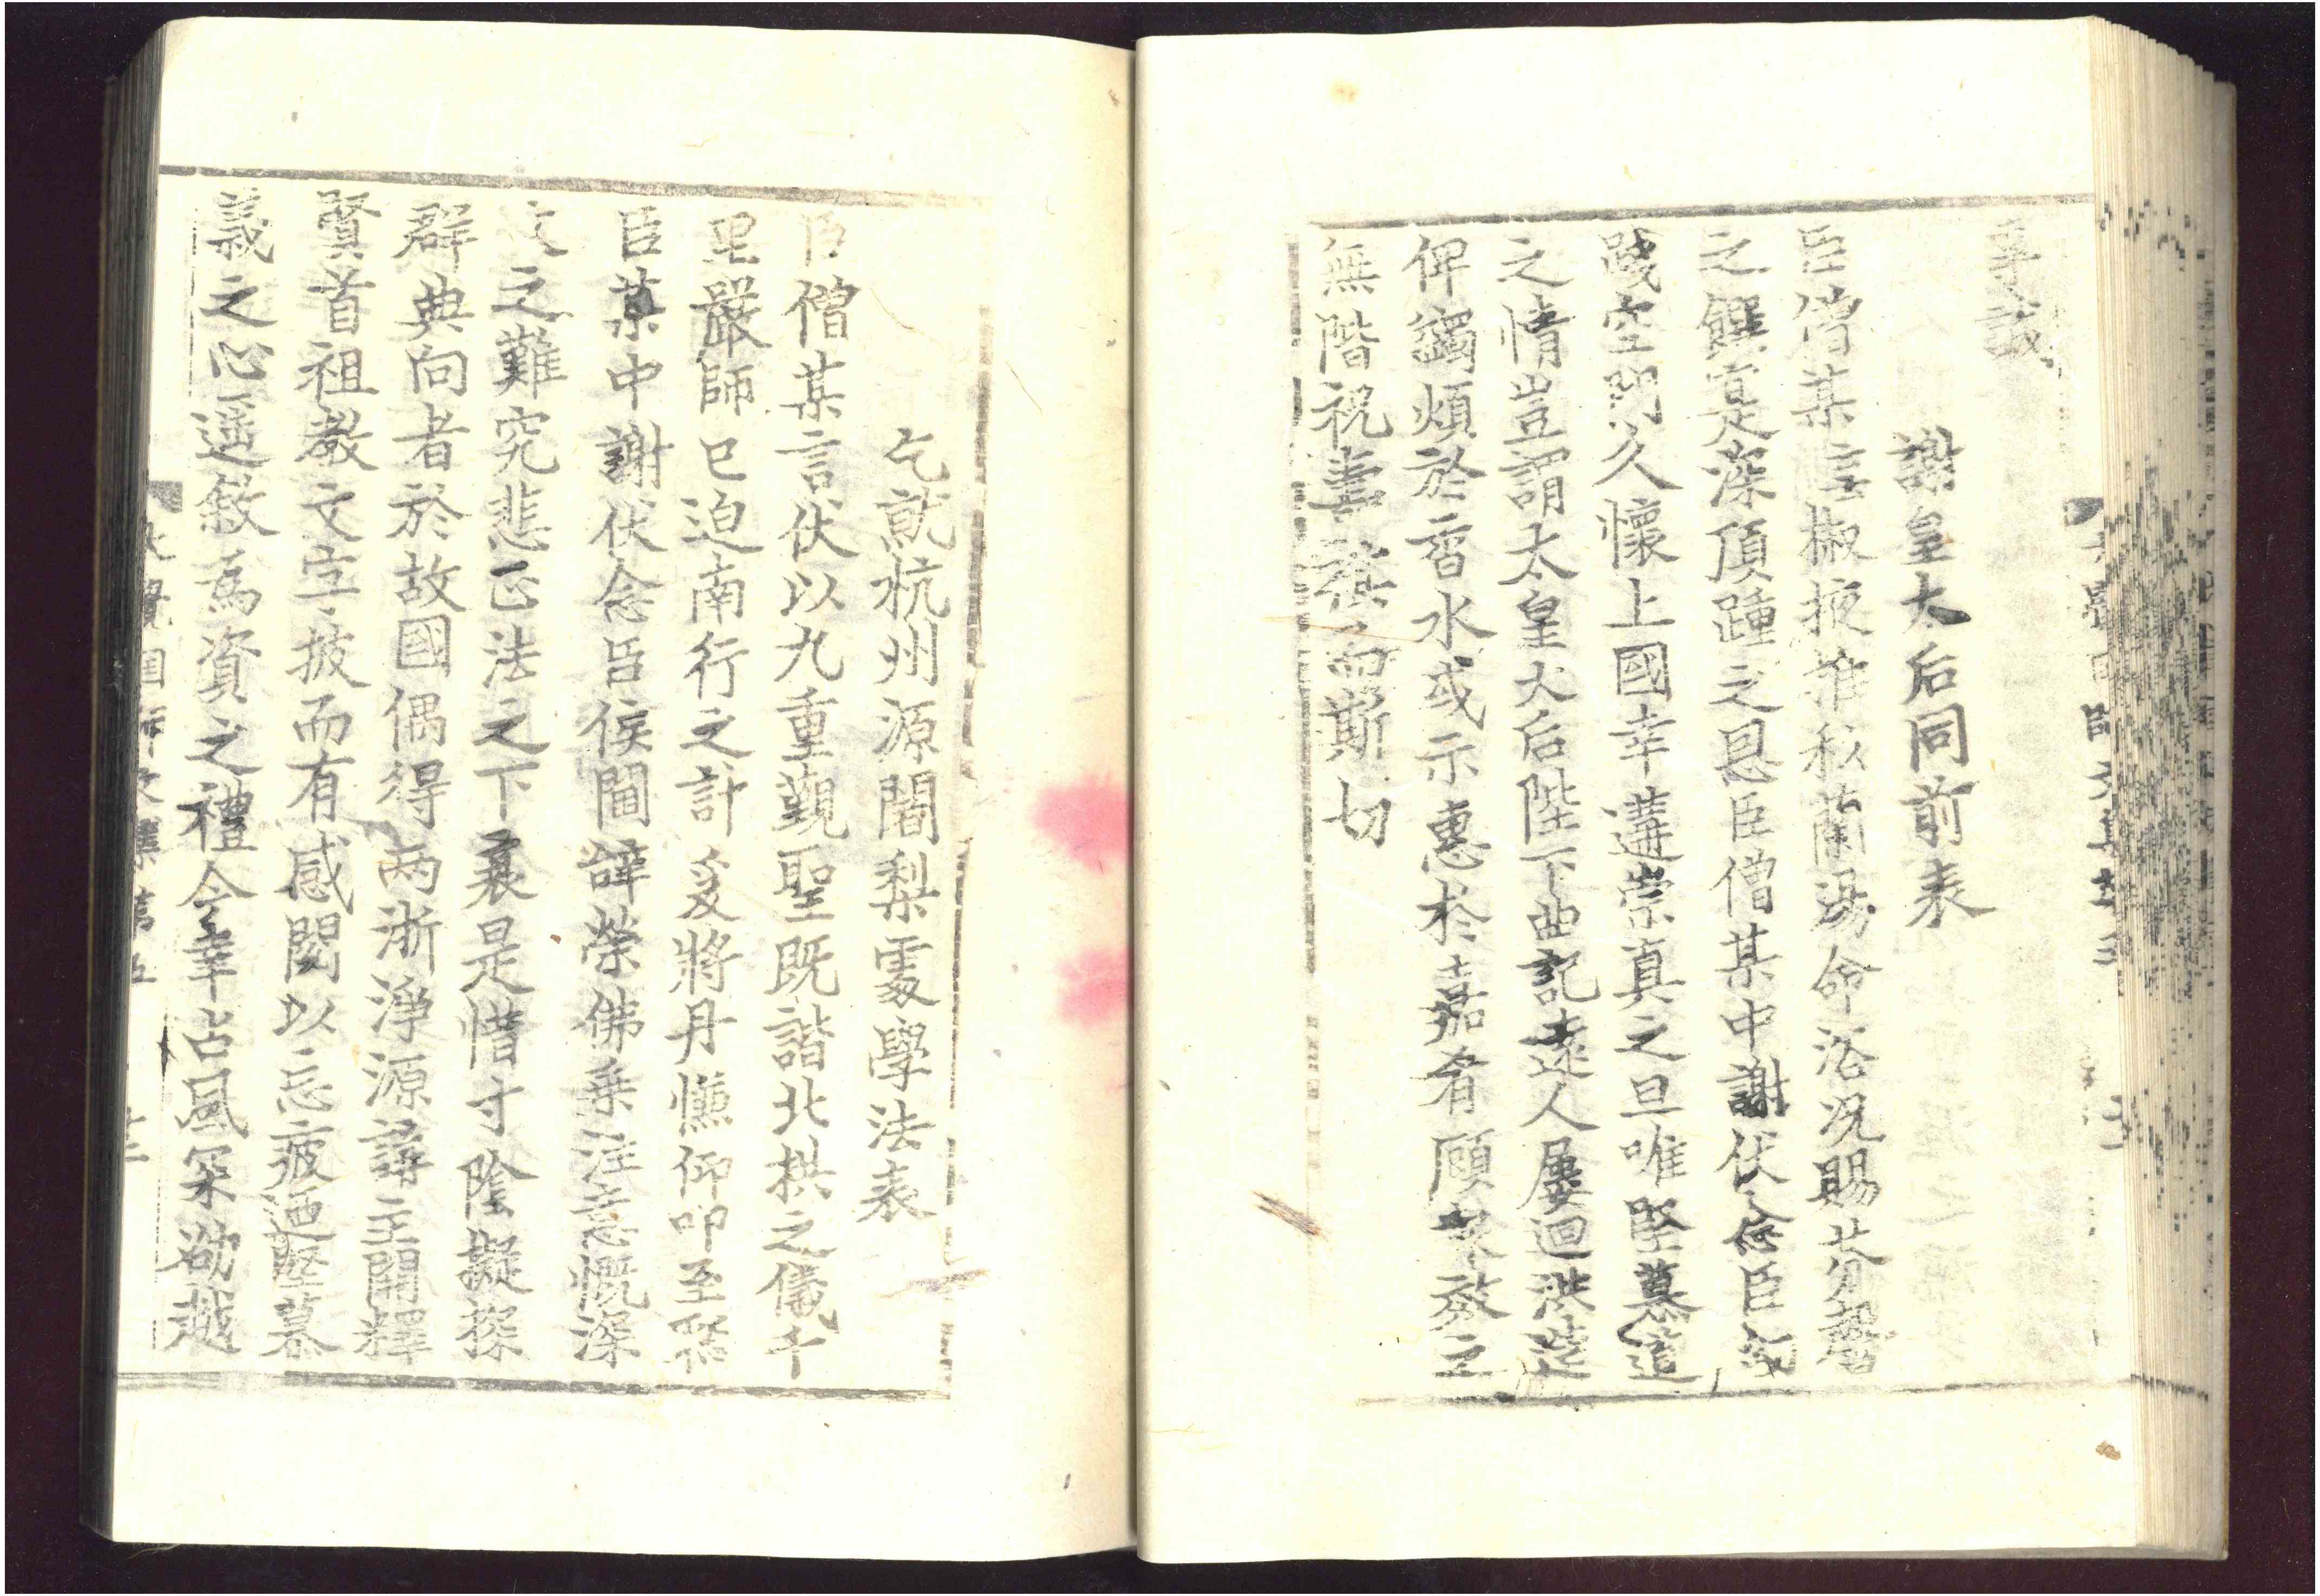 謝皇太后同前表
臣僧某言椒掖推私蘭湯命浴況賜芬馨
之饌寔深頂踵之恩臣僧某中謝伏念臣
踐空門久懷上國幸遘崇真之旦唯堅慕道
之情豈謂太皇太后陛下曲記遠人屢迴洪造
俾蠲煩於香水或示惠於嘉肴顧
無階祝善禱而斯切
乞就杭州源闍梨處學法表
臣僧某言伏以九重觀聖既諧北拱之儀千
里嚴師已迫南行之計爰將丹懇仰叩至聰
臣某中謝伏念臣侯閫辭榮佛乘注意慨深
文之難究悲正法之下衰是惜寸陰擬探
群典向者於故國偶得兩浙淨源講主開釋
賢首祖教文字披而有感閱以忘疲迺堅慕
義之心遥敘爲資之禮今幸占風深欲越
大覺國師文集第五